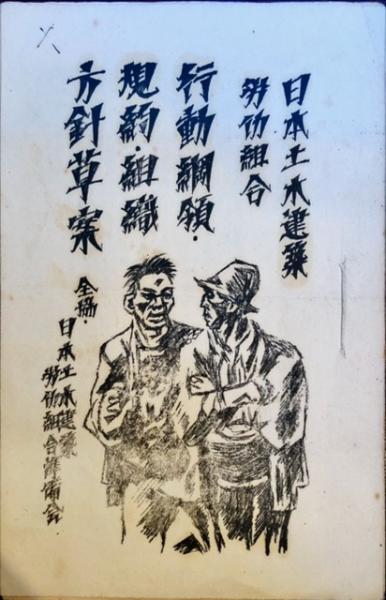 日本土木建築
労仂組合
行動綱領・
規約・組織
方針草案
全協・
日本土木建築
労仂組合準備会